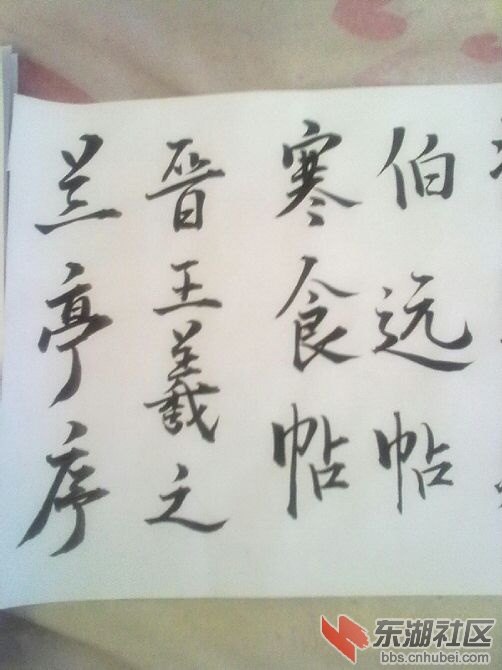 伯远帖
寒食帖
晋王羲之
兰亭序
东湖社区
bbs.cnhubei.com